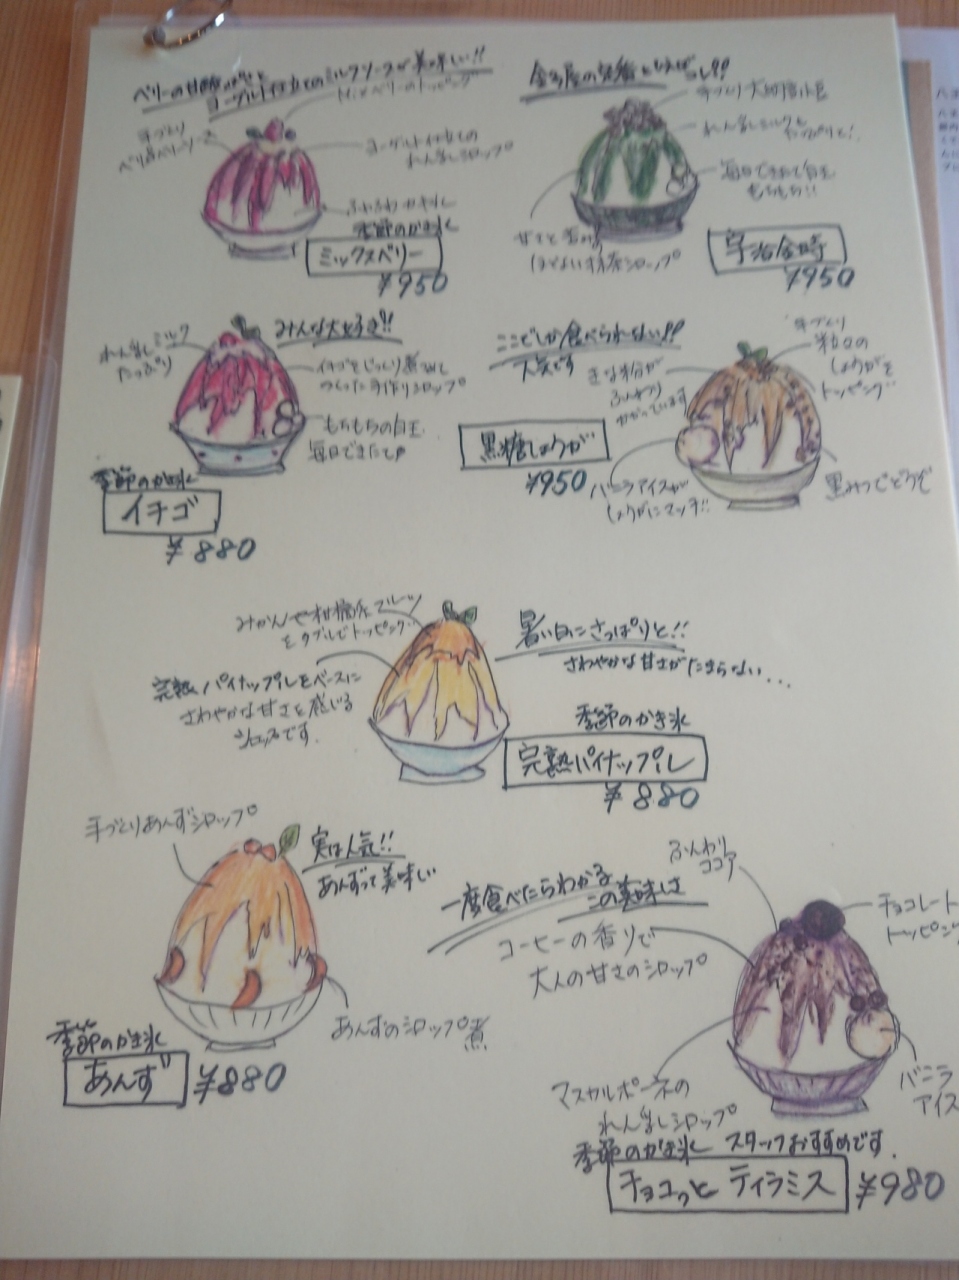 ベリーの甘酸っぱさと
ヨーグルト仕立てのミルクソースが美味しい!!
Mixベリーのトッピング
手づくり
ベリーソース
ヨーグルト仕立ての
れん乳シロップ
ふわふわかき氷
季節のかき氷
ミックスベリー
¥950
手づくり大納言小豆
れん乳ミルクも
たっぷりと!
毎日できたて白玉
もちもち!!
甘さと香りの
ほどよい抹茶シロップ
宇治金時
¥950
みんな大好き!!
れん乳ミルク
たっぷり
イチゴをじっくり煮て
つくった手作りシロップ
もちもちの白玉
毎日できたて
季節のかき氷
イチゴ
¥880
ここでしか食べられない!!
人気です
手づくり
粒々の
しょうがを
トッピング
きな粉が
ふんわり
かかっています
黒糖しょうが
¥950
バニラアイスが
しょうがにマッチ!!
黒みつでどうぞ
みかんや柑橘系フルーツ
をダブルでトッピング
暑い日にさっぱりと!!
さわやかな甘さがたまらない...
完熟パイナップルをベースに
さわやかな甘さを感じる
シロップです.
季節のかき氷
完熟パイナップル
¥880
手づくりあんずシロップ
実は人気!!
あんずって美味しい
あんずのシロップ煮
季節のかき氷
あんず
¥880
一度食べたらわかる
この美味しさ
ふんわり
ココア
チョコレート
トッピング
コーヒーの香りで
大人の甘さのシロップ
マスカルポーネの
れん乳シロップ
バニラ
アイス
季節のかき氷 スタッフおすすめです.
チョコっとティラミス
¥980